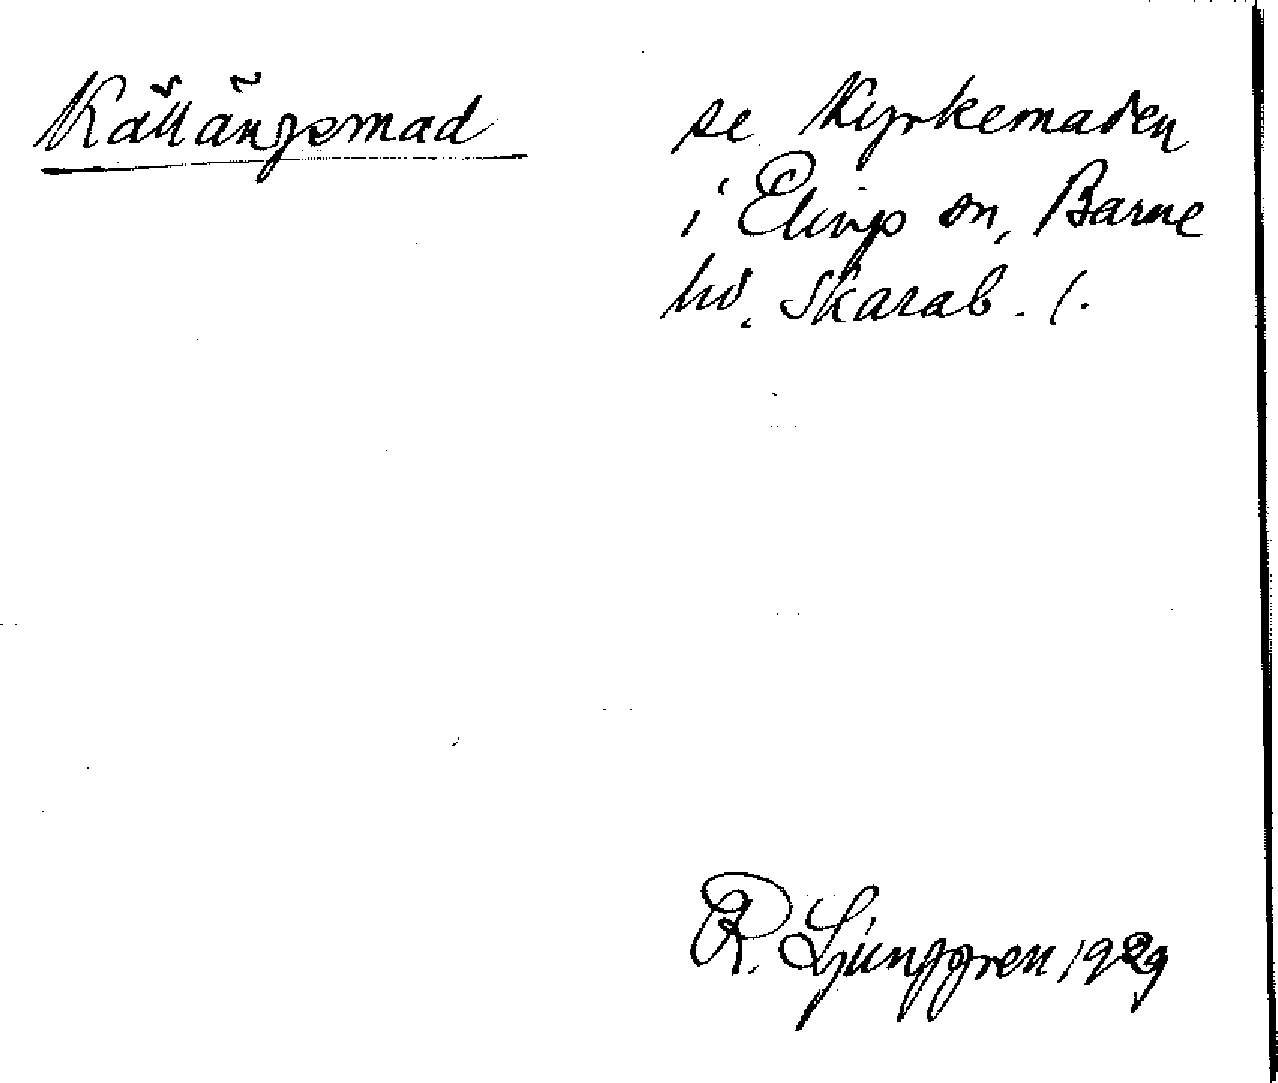 Källängsmad
se Kyrkemaden
i Elings sn, Barne
hd. Skarab. l.
R. Ljunggren 1929